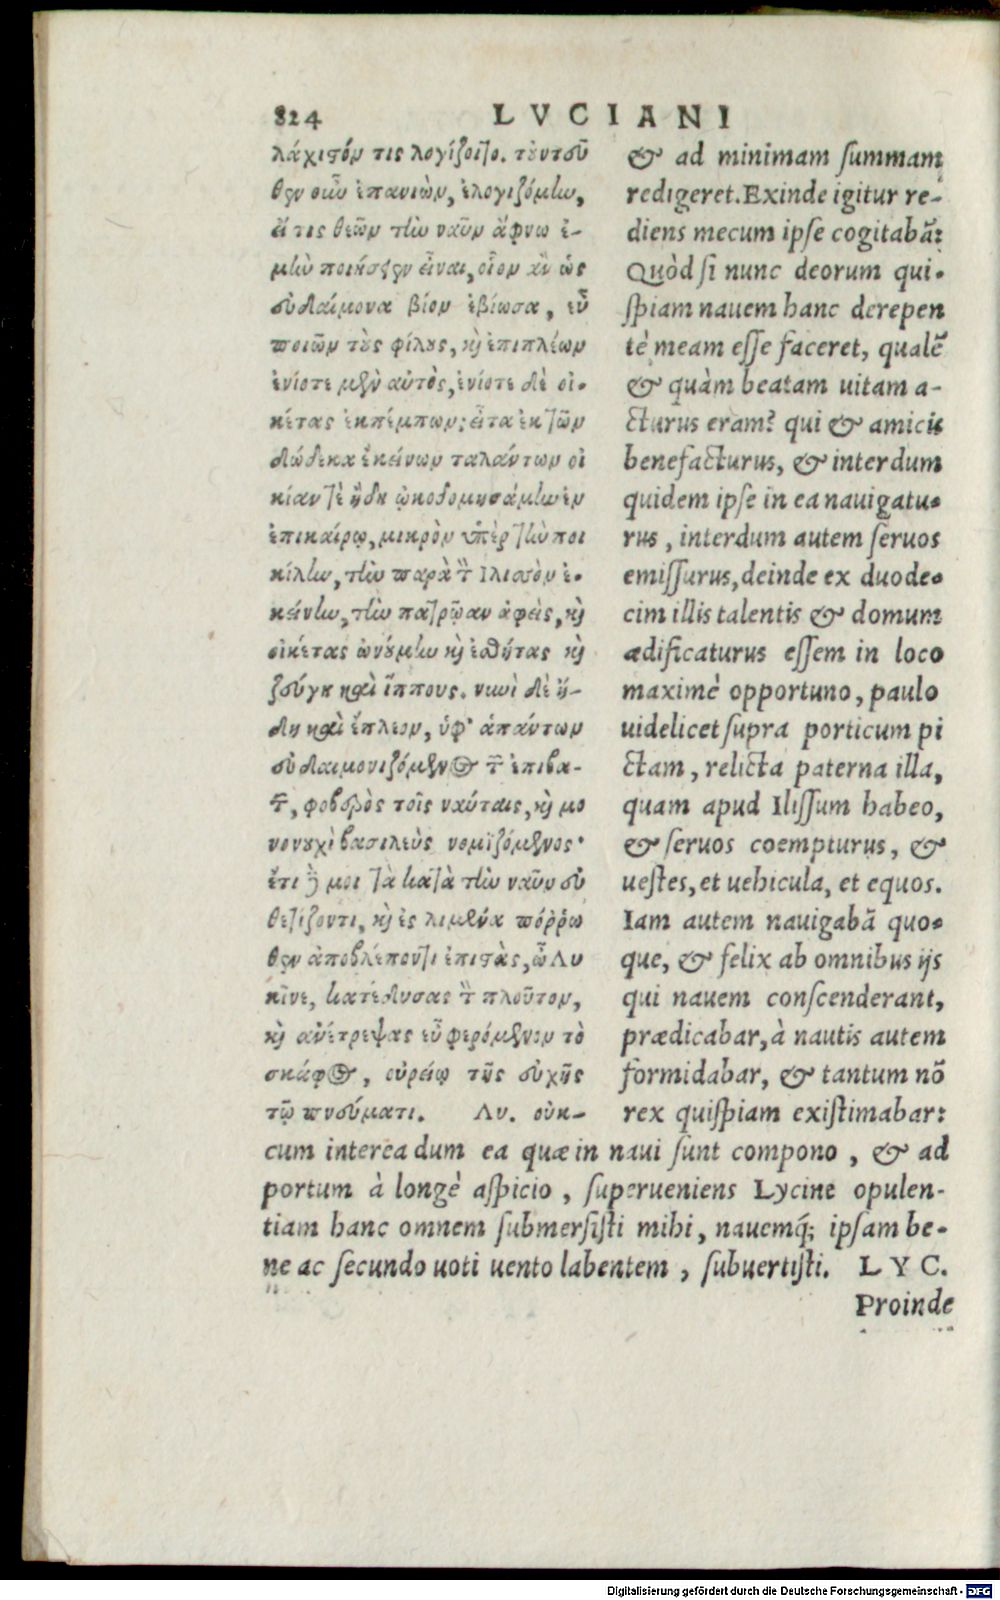 824 LVCIANI
λάχιστόν τις λογίζοιτο. τοὐντεῦ
θεν οὖν ἐπανιὼν, ἐλογιζόμην,
εἴ τις θεῶν τὴν ναῦν ἄφνω ἐ-
μὴν ποιήσειεν εἶναι, οἷον ἂν ὡς
εὐδαίμονα βίον ἐβίωσα, εὖ
ποιῶν τοὺς φίλους, καὶ ἐπιπλέων
ἐνίοτε μὲν αὐτὸς, ἐνίοτε δὲ οἰ-
κέτας ἐκπέμπων; εἶτα ἐκ τῶν
δώδεκα ἐκείνων ταλάντων οἰ
κίαν τὲ ἤδη ᾠκοδομησάμην ἐν
ἐπικαίρῳ, μικρὸν ὑπὲρ τὴν ποι
κίλην, τὴν παρὰ τὸν Ιλισσὸν ἐ-
κείνην, τὴν πατρῴαν ἀφεὶς, καὶ
οἰκέτας ὠνούμην καὶ ἐσθῆτας καὶ
ζεύγη καὶ ἵππους. νυνὶ δὲ ἤ-
δη καὶ ἔπλεον, ὑφ' ἁπάντων
εὐδαιμονιζόμενος τῶν ἐπιβα-
τῶν, φοβερὸς τοῖς ναύταις, καὶ μο
νονουχὶ βασιλεὺς νομιζόμενος·
ἔτι δέ μοι τὰ κατὰ τὴν ναῦν εὐ
θετίζοντι, καὶ ἐς λιμένα πόῤῥω
θεν ἀποβλέποντι ἐπιστὰς, ὦ Λυ
κῖνε, κατέδυσας τὸν πλοῦτον,
καὶ ἀνέτρεψας εὖ φερόμενον τὸ
σκάφος, οὐρίῳ τῆς εὐχῆς
τῷ πνεύματι. Λυ. οὐκ-
& ad minimam summam
redigeret. Exinde igitur re-
diens mecum ipse cogitabã:
Quòd si nunc deorum qui-
spiam nauem hanc derepen
tè meam esse faceret, qualẽ
& quàm beatam uitam a-
cturus eram? qui & amicis
benefacturus, & interdum
quidem ipse in ea nauigatu-
rus, interdum autem seruos
emissurus, deinde ex duode-
cim illis talentis & domum
ædificaturus essem in loco
maximè opportuno, paulo
uidelicet supra porticum pi
ctam, relicta paterna illa,
quam apud Ilissum habeo,
& seruos coempturus, &
uestes, et uehicula, et equos.
Iam autem nauigabã quo-
que, & felix ab omnibus ijs
qui nauem conscenderant,
prædicabar, à nautis autem
formidabar, & tantum nõ
rex quispiam existimabar:
cum interea dum ea quæ in naui sunt compono, & ad
portum à longè aspicio, superueniens Lycine opulen-
tiam hanc omnem submersisti mihi, nauemq́; ipsam be-
ne ac secundo uoti uento labentem, subuertisti. LYC.
Proinde
Digitalisierung gefördert durch die Deutsche Forschungsgemeinschaft - DFG